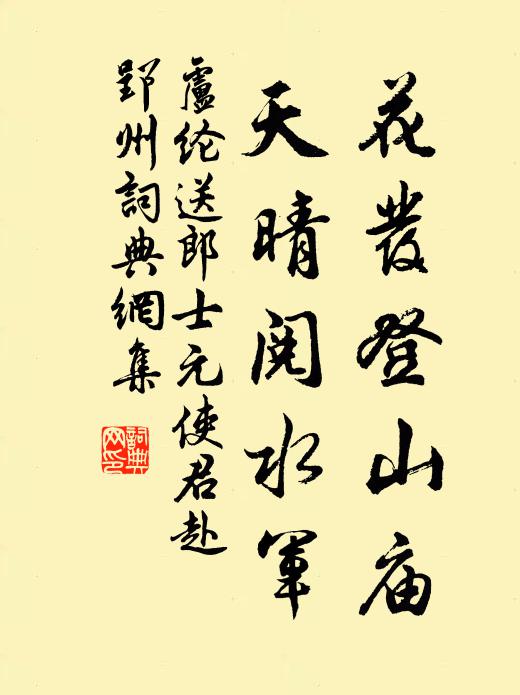 花發登山庙
天晴閱水軍
盧纶送郎士元使君赴
郢州詞典網集
詞典
网印